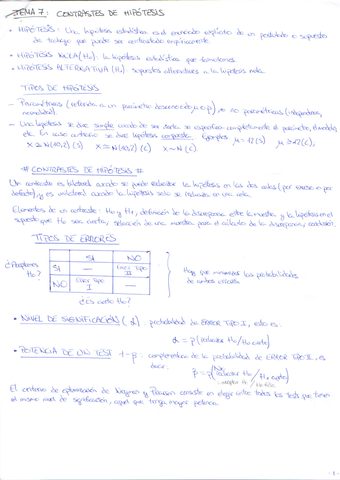 TEMA 7: CONTRASTES DE HIPÓTESIS
• HIPÓTESIS: Una hipótesis estadística es el enunciado explícito de un postulado o supuesto
de trabajo que puede ser contrastado empíricamente
• HIPÓTESIS NULA (H0): la hipótesis estadística que
• HIPÓTESIS ALTERNATIVA (H1) supuestos alternativos a la hipótesis nula.
TIPOS DE HIPÓTESIS
- Paramétricas (referida a un parámetro desconocido μ o p), o no paramétricas (independencia,
normalidad).
- Una hipótesis se dice simple cuando de ser cierta se especifica completamente el parámetro, el modelo,
etc. En caso contrario se dice hipótesis compuesta. Ejemplos μ=12 (S) μ>12 (C),
x≈N(10,2) (S) x~N(10,2) (C) x~N (C).
# CONTRASTES DE HIPÓTESIS #
Un contraste es bilateral cuando se puede rechazar la hipótesis en las dos colas (por exceso o por
defecto), y es unilateral cuando la hipótesis solo se rechaza en una cola.
Elementos de un contraste: H0 y H1, definición de la discrepancia entre la muestra y la hipótesis en el
supuesto que H0 sea cierta, selección de una muestra para el cálculo de la discrepancia, conclusión.
TIPOS DE ERRORES
SI NO
¿Aceptamos H0?
SI — Error Tipo II
NO Error Tipo I —
¿Es cierto H0?
Hay que minimizar las probabilidades
de ambos errores
• NIVEL DE SIGNIFICACIÓN (α): probabilidad de ERROR TIPO I, esto es:
α = p(rechazar H0/H0 cierta)
• POTENCIA DE UN TEST 1-β: complementario de la probabilidad de ERROR TIPO II, es
decir:
β = p(
El criterio de optimización de Neyman y Pearson consiste en elegir entre todos los tests que tienen
el mismo nivel de significación, aquel que tenga mayor potencia.
- 1 -